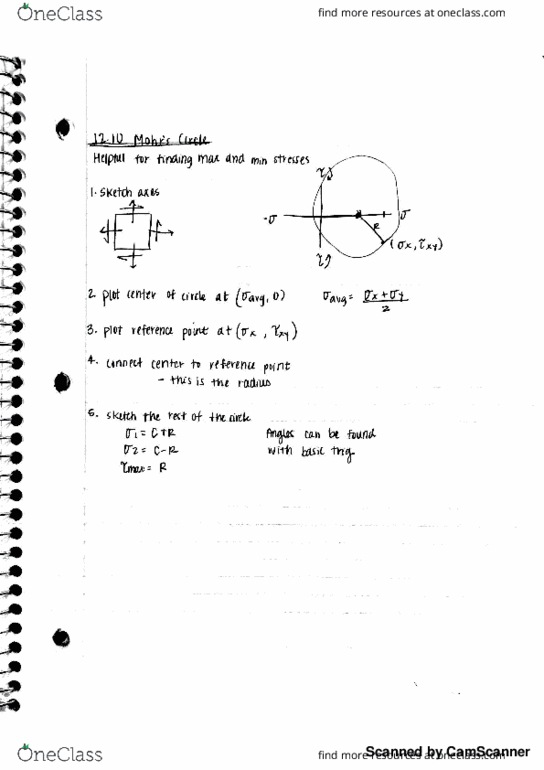 OneClass
find more resources at oneclass.com
12.10 Mohr's Circle
Helpful for finding max and min stresses
1. sketch axes
τ
-σ
σ
R
(σx, τxy)
τ
2. plot center of circle at (σavg, 0)
σavg = σx + σy / 2
3. plot reference point at (σx, τxy)
4. connect center to reference point
- this is the radius
5. sketch the rest of the circle
σ1 = C+R
Angles can be found
σ2 = C-R
with basic trig.
τmax = R
OneClass
find more resources at oneclass.com
Scanned by CamScanner